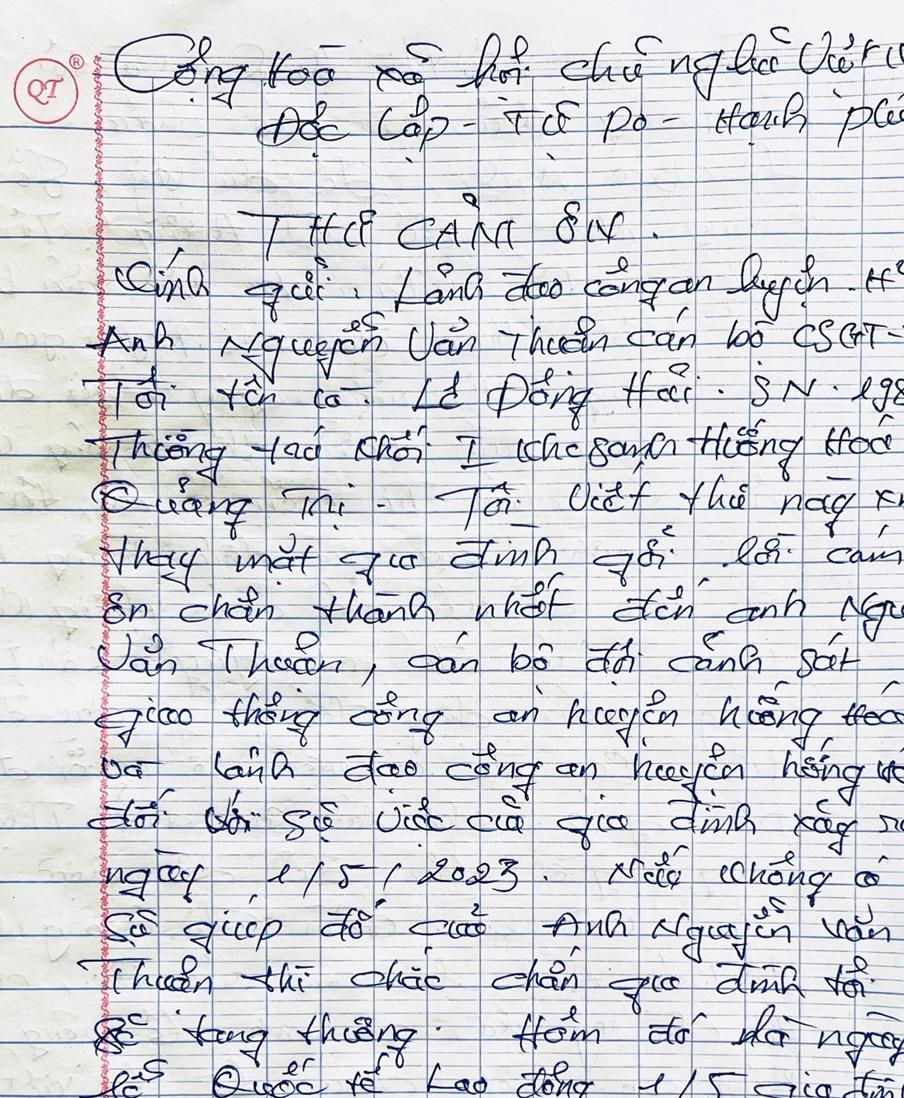 QT ®
Cộng Hoà xã hội chủ nghĩa Việt
Độc Lập - Tự Do - Hạnh
THƯ CẢM ƠN.
Kính gửi. Lãnh đạo công an huyện.
Anh Nguyễn Văn Thuận cán bộ CSGT-
Tôi tên là. Lê Đông Hải. SN. 198
Thường trú khối I Khe Sanh Hướng Hoá
Quảng Trị - Tôi viết thư này
thay mặt gia đình gửi lời cảm
ơn chân thành nhất đến anh
Văn Thuận, cán bộ đội cảnh sát
giao thông công an huyện hướng Hoá
và lãnh đạo công an huyện hướng
đối với sự việc của gia đình xảy
ngày 1/5/2023. Nếu không có
sự giúp đỡ của Anh Nguyễn Văn
Thuận thì chắc chắn gia đình tôi
sẽ tang thương. Hôm đó là ngày
lễ Quốc tế Lao động 1/5 gia